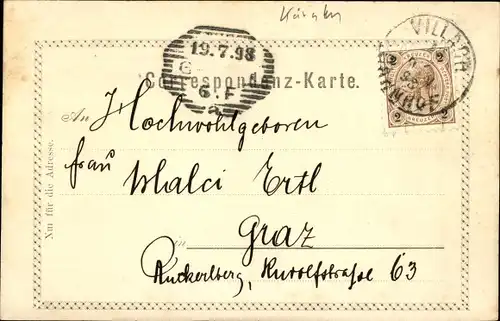 Kärnten
VILLACH
BAHNHOF
19.7.98
G
6.F
a
Correspondenz-Karte.
2 2
An Hochwohlgeboren
Frau Malci Ertl
in Graz
Ruckerlberg, Rudolfstraße 63
Nur für die Adresse.